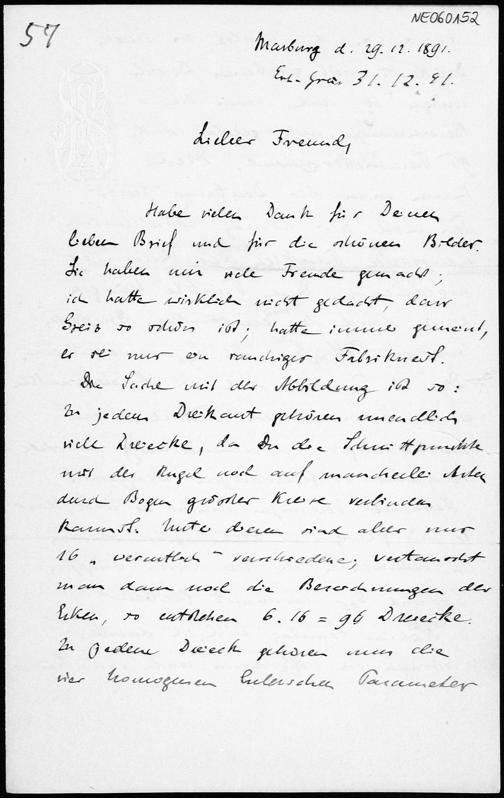 57
NE060152
Marburg d. 29.12.1891.
Erh. Greiz 31.12.91.
Lieber Freund,
Habe vielen Dank für Deinen
lieben Brief und für die schönen Bilder.
Sie haben mir viele Freude gemacht;
ich hatte wirklich nicht gedacht, dass
Greiz so schön ist; hatte immer gemeint,
es sei nur ein rauchiges Fabriknest.
Die Sache mit der Abbildung ist so:
Zu jedem Dreikant gehören unendlich
viele Dreiecke, da Du die Schnittpunkte
mit der Kugel noch auf mancherlei Arten
durch Bogen grösster Kreise verbinden
kannst. Unter diesen sind aber nur
16 „wesentlich“ verschiedene; vertauscht
man dann noch die Bezeichnungen der
Ecken, so entstehen 6.16 = 96 Dreiecke.
Zu jedem Dreieck gehören nun die
vier homogenen Eulerschen Parameter